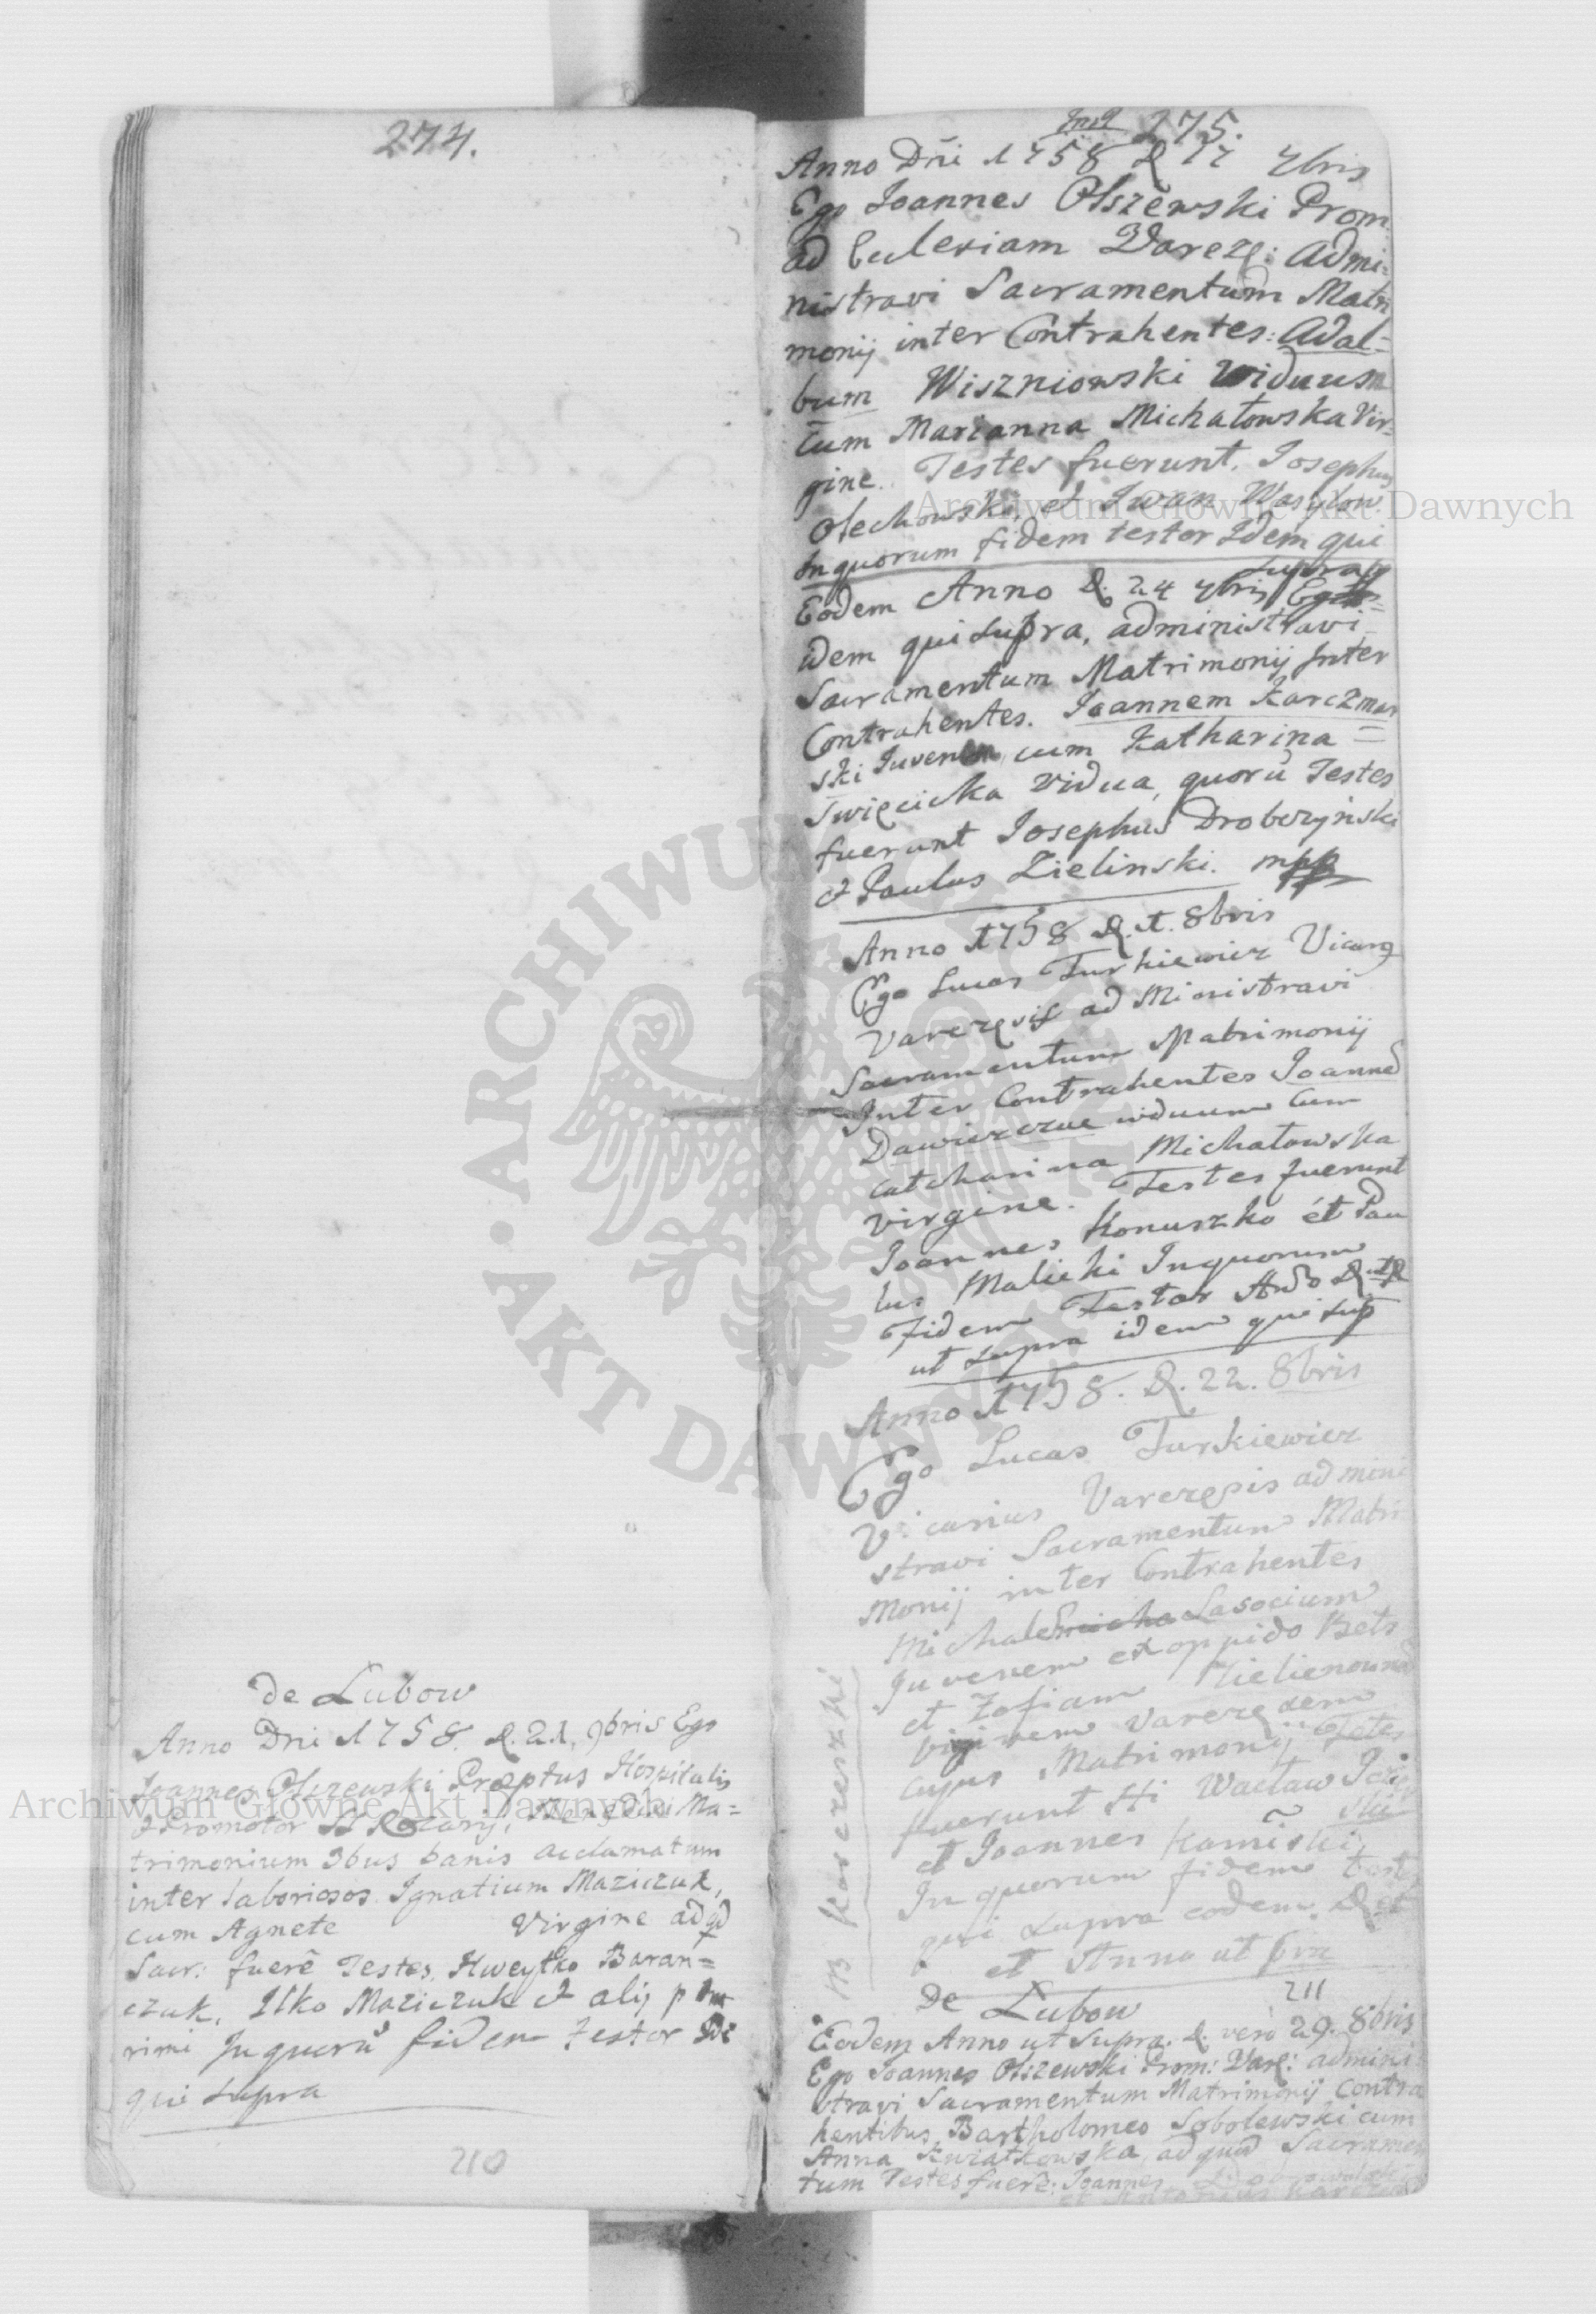 274.
de Lubow
Anno Dni 1758. D. 21. 9bris Ego
Joannes Olszewski Præptus Hospitalis
& Promotor SS Rosarij, Ma=
trimonium 3bus banis acclamatum
inter laboriosos Ignatium Maziczuk,
cum Agnete Virgine ad qd
Sacr: fuerē Testes, Hweytko Baran=
czuk, Ilko Maziczuk & alij plu
rimi In quorū fidem testor Ide
qui supra
210
275.
Anno Dñi 1758 D 17 7bris
Ego Joannes Olszewski Prom.
ad Eccleriam Varez: Admi=
nistravi Sacramentum Matri
monij inter Contrahentes: Adal=
bum Wiszniowski Viduum
Cum Marianna Michałowska Vir=
gine. Testes fuerunt, Josephus
Olechowski, et Iwan Wasylow.
In quorum fidem testor Idem qui
supra
Eodem Anno D. 24 7bris Ego
idem qui supra, administravi
Sacramentum Matrimonij Inter
Contrahentes. Joannem Karczmar
ski Juvenem, cum Katharina =
Swięcicka Vidua, quorū Testes
fuerunt Josephus Drobczyński
& Paulus Zielinski. mpp
Anno 1758 D. 1. 8bris
Ego Lucas Turkiewicz Vicarius
Varezensis ad Ministravi
Sacramentum Matrimonij
Inter Contrahentes Joannem
Dawierczuc viduum Cum
Catcharina Michałowska
Virgine. Testes fuerunt
Joannes Konuszko et Pau
lus Malicki Inquorum
Fidem Testor D
ut supra idem qui sup
Anno 1758. D. 22. 8bris
Ego Lucas Turkiewicz
Vicarius Varezesis ad mini
stravi Sacramentum Matri
Monij inter Contrahentes
Michale Lasocium
Juvenem ex oppido Bełz
et Zofiam Zielienowna
virginem Varezedem
Cujus Matrimonij Tetes
fuerunt Hi Wacław
et Joannes Kamiński
In quorum fidem testor
qui supra eodem D et
et Anno ut supra
211
De Lubow
Eodem Anno ut supra. D. vero 29. 8bris
Ego Joannes Olszewski Prom: Varę: admini
stravi Sacramentum Matrimonij Contra
hentibus Bartholomeo Sobolewski cum
Anna Kwiatkowska, ad quod Sacramen
tum Testes fuerē: Joannes
et Antonius
Archiwum Główne Akt Dawnych
Archiwum Główne Akt Dawnych